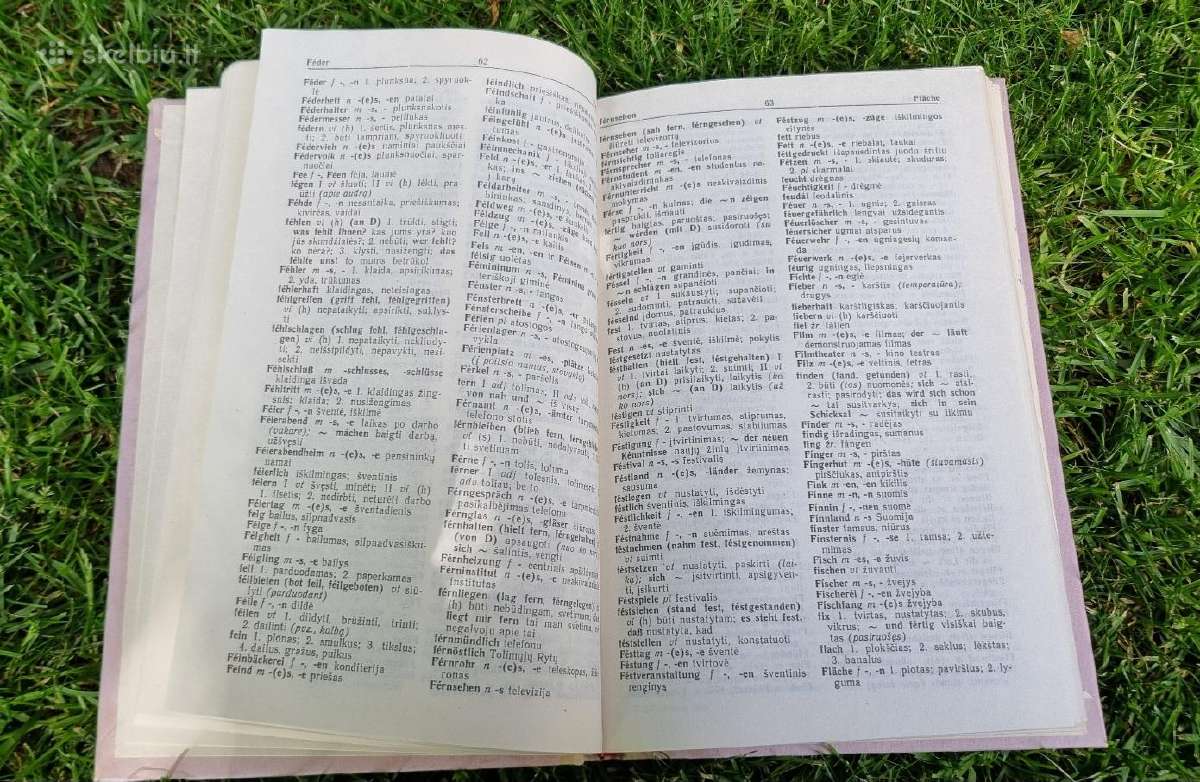 skelbiu.lt
Féder 62
Féder f -, -n 1. plunksna; 2. spyruok-
lė
Féderbett n -(e)s, -en patalai
Féderhalter m -s, - plunksnakotis
Fédermesser n -s, - peiliukas
Fédervieh n -(e)s naminiai paukščiai
Fédervolk n -(e)s plunksnuočiai, spar-
nuočiai
Fee f -, Feen fėja, laumė
fégen I vt šluoti; II vi (h) lėkti, pra-
ūžti (apie audrą)
Féhde f -, -n nesantaika, priešiškumas;
kivirčas, vaidai
féhlen vi (h) (an D) 1. trūkti, stigti;
was fehlt Ihnen? kas jums yra? kuo
jūs skundžiatės? 2. nebūti; wer fehlt?
ko nėra?; 3. klysti, nusižengti; das
fehlte uns! to mums betrūko!
Féhler m -s, - 1. klaida, apsirikimas;
2. yda, trūkumas
féhlerhaft klaidingas, neteisingas
féhlgreifen (griff fehl, féhlgegriffen)
vi (h) nepataikyti, apsirikti, suklys-
ti
féhlschlagen (schlug fehl, féhlgeschla-
gen) vi (h) 1. nepataikyti, nekliudy-
ti; 2. neišsipildyti, nepavykti, nesi-
sekti
Féhlschluß m -schlusses, -schlüsse
klaidinga išvada
Féhltritt m -(e)s, -e 1. klaidingas žings-
nis; klaida; 2. nusižengimas
Féier f -, -n šventė, iškilmė
Féierabend m -s, -e laikas po darbo
(vakare); ~ machen baigti darbą,
užšvęsti
Féierabendheim n -(e)s, -e pensininkų
namai
féierlich iškilmingas; šventinis
féiern I vt švęsti, minėti; II vi (h)
1. ilsėtis; 2. nedirbti, neturėti darbo
Féiertag m -(e)s, -e šventadienis
feig bailus, silpnadvasis
Féige f -, -n fyga
Féigheit f - bailumas, silpnadvasišku-
mas
Féigling m -s, -e bailys
feil 1. parduodamas; 2. paperkamas
féilbieten (bot feil, féilgeboten) vt siū-
lyti (parduodant)
Féile f -, -n dildė
féilen vt 1. dildyti, brūžinti, trinti;
2. dailinti (pvz., kalbą)
fein 1. plonas; 2. smulkus; 3. tikslus;
4. dailus, gražus, puikus
Féinbäckerei f -, -en konditerija
Feind m -(e)s, -e priešas
féindlich priešiškas,
Féindschaft f -,
Féingefühl n -(e)s,
Féinkost f - gastronomija
Féinmechanik f -
Feld n -(e)s,
Féldarbeiter m -s,
Féldweg m -(e)s, -e
Féldzug m -(e)s,
Félge f -, -n ratlankis
Fell n -(e)s, -e kailis
Fels m -en, -en ir Félsen m
félsig uolėtas
Féminínum n -s,
Fénster n -s, - langas
Fénsterbrett n -(e)s,
Fénsterscheibe f -, -n
Férien pl atostogos
Férienlager n -s, -
Férienplatz m -es, -plätze
Férkel n -s, - paršelis
fern I adj tolimas; II adv
von nah und ~ iš visur
Férnamt n -(e)s, -ämter
telefono stotis
férnbleiben (blieb fern, férngeblieben)
vi (s) 1. nebūti, nedalyvauti;
Férne f -, -n tolis, toluma
férner I adj tolesnis,
adv toliau, be to
Férngespräch n -(e)s, -e
pasikalbėjimas telefonu
Férnglas n -(e)s, -gläser žiūronas
férnhalten (hielt fern, férngehalten)
(von D) apsaugoti (nuo ko nors);
sich ~ šalintis, vengti
Férnheizung f - centrinis apšildymas
Férninstitut n -(e)s, -e neakivaizdinis
institutas
férnliegen (lag fern, férngelegen) vi
(h) būti nebūdingam, svetimam; es
liegt mir fern tai man svetima,
negalvoju apie tai
férnmündlich telefonu
férnöstlich Tolimųjų Rytų
Férnrohr n -(e)s, -e teleskopas, žiū-
ronas
Férnsehen n -s televizija
Férnsehen 63 Fläche
férnsehen (sah fern, férngesehen) vi
žiūrėti televizorių
Férnseher m -s, - televizorius
férnsichtig toliaregis
Férnsprecher m -s, - telefonas
Férnstudent m -en, -en studentas ne-
akivaizdininkas
Férnunterricht m -(e)s neakivaizdinis
mokymas
Férse f -, -n kulnas; die ~n zeigen
pasprukti, išmauti
fértig baigtas, paruoštas, pasiruošęs;
~ werden (mit D) susidoroti (su
kuo nors)
Fértigkeit f -, -en įgūdis, įgudimas,
vikrumas
fértigstellen vt gaminti
Féssel f -, -n grandinės, pančiai; in
~n schlagen supančioti
fésseln vt 1. sukaustyti, supančioti;
2. sudominti, patraukti, sužavėti
fésselnd įdomus, patrauklus
fest 1. tvirtas, stiprus, kietas; 2. pa-
stovus, nuolatinis
Fest n -es, -e šventė, iškilmė; pokylis
féstgesetzt nustatytas
fésthalten (hielt fest, féstgehalten) I
vt 1. tvirtai laikyti; 2. suimti; II vi
(h) (an D) prisilaikyti, laikytis (ko
nors); sich ~ (an D) laikytis (už
ko nors)
féstigen vt stiprinti
Féstigkeit f - 1. tvirtumas, stiprumas,
kietumas; 2. pastovumas, stabilumas
Féstigung f - įtvirtinimas; ~ der neuen
Kénntnisse naujų žinių įtvirtinimas
Féstival n -s, -s festivalis
Féstland n -(e)s, -länder žemynas;
sausuma
féstlegen vt nustatyti, išdėstyti
féstlich šventinis, iškilmingas
Féstlichkeit f -, -en 1. iškilmingumas,
2. šventė
Féstnahme f -, -n suėmimas, areštas
féstnehmen (nahm fest, féstgenommen)
vt suimti
féstsetzen vt nustatyti, paskirti (lai-
ką); sich ~ įsitvirtinti, apsigyven-
ti, įsikurti
Féstspiele pl festivalis
féststehen (stand fest, féstgestanden)
vi (h) būti nustatytam; es steht fest,
daß nustatyta, kad
féststellen vt nustatyti, konstatuoti
Fésttag m -(e)s, -e šventė
Féstung f -, -en tvirtovė
Féstveranstaltung f -, -en šventinis
renginys
Féstzug m -(e)s, -züge iškilmingos
eitynės
fett riebus
Fett n -(e)s, -e riebalai, taukai
féttgedruckt išspausdintas juodu šriftu
Fétzen m -s, - 1. skiautė, skuduras;
2. pl skarmalai
feucht drėgnas
Féuchtigkeit f - drėgmė
feudál feodalinis
Féuer n -s, - 1. ugnis; 2. gaisras
féuergefährlich lengvai užsidegantis
Féuerlöscher m -s, - gesintuvas
féuersicher ugniai atsparus
Féuerwehr f -, -en ugniagesių koman-
da
Féuerwerk n -(e)s, -e fejerverkas
féurig ugningas, liepsningas
Fíchte f -, -n eglė
Fíeber n -s, - karštis (temperatūra);
drugys
fíeberhaft karštligiškas, karščiuojantis
fíebern vi (h) karščiuoti
fiel žr. fállen
Film m -(e)s, -e filmas; der ~ läuft
demonstruojamas filmas
Fílmtheater n -s, - kino teatras
Filz m -es, -e veltinis, fetras
fínden (fand, gefúnden) vt 1. rasti,
2. būti (tos) nuomonės; sich ~ atsi-
rasti; pasirodyti; das wird sich schon
~ tai susitvarkys; sich in sein
Schícksal ~ susitaikyti su likimu
Fínder m -s, - radėjas
fíndig išradingas, sumanus
fing žr. fángen
Fínger m -s, - pirštas
Fíngerhut m -(e)s, -hüte (siuvamasis)
pirščiukas, antpirštis
Fink m -en, -en kikilis
Fínne m -n, -n suomis
Fínnin f -, -nen suomė
Fínnland n -s Suomija
fínster tamsus, niūrus
Fínsternis f -, -se 1. tamsa; 2. užte-
mimas
Fisch m -es, -e žuvis
físchen vt žuvauti
Físcher m -s, - žvejys
Fischeréi f -, -en žvejyba
Físchfang m -(e)s žvejyba
fix 1. tvirtas, nustatytas; 2. skubus,
vikrus; ~ und fértig visiškai baig-
tas (pasiruošęs)
flach 1. plokščias; 2. seklus; lėkštas;
3. banalus
Fläche f -, -n 1. plotas; paviršius; 2. ly-
guma